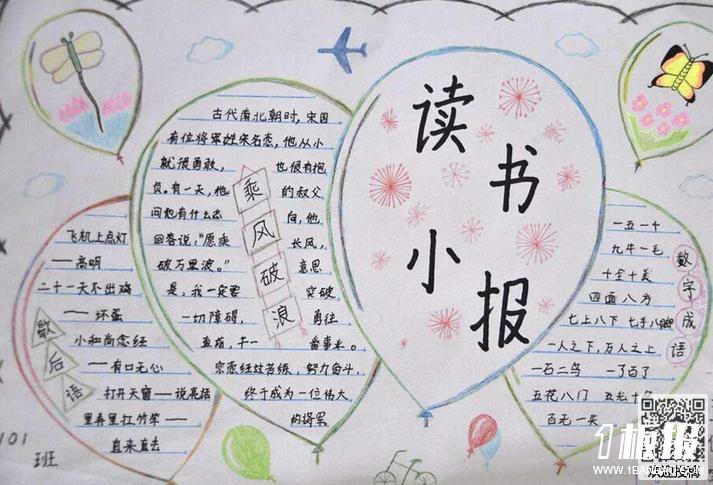 读书小报
古代南北朝时，宋国
有位将军姓宗名悫，他从小
就很勇敢，也很有抱
负，有一天，他的叔父
问他有什么志向，他
回答说，“愿乘长风，
破万里浪。”意思
是，我一定要突破
一切障碍，勇往
直前，干一番事业。
宗悫经过苦练，努力奋斗，
终于成为一位伟大
的将军
乘风破浪
飞机上点灯
——高明
二十一天不出鸡
——坏蛋
小和尚念经
——有口无心
打开天窗——说亮话
里弄里扛竹竿——
直来直去
歇后语
一五一十
九牛一毛
十全十美
四面八方
七上八下 七手八脚
一人之下，万人之上
一石二鸟 一了百了
五花八门 五光十
百无一失
数字成语
101
班
1板报
WWW.1BANBAO.COM